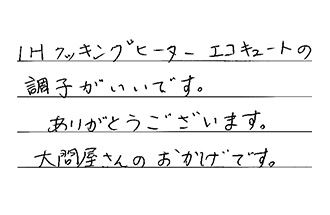 IHクッキングヒーター エコキュートの
調子がいいです。
ありがとうございます。
大問屋さんのおかげです。